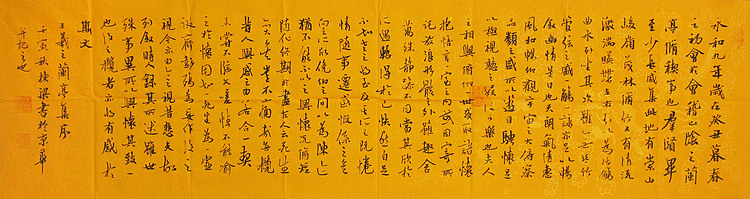 永和九年歲在癸丑暮春
之初會於會稽山陰之蘭
亭脩禊事也群賢畢
至少長咸集此地有崇山
峻嶺茂林脩竹又有清流
激湍映帶左右引以為流觴
曲水列坐其次雖無絲竹
管弦之盛一觴一詠亦足以暢
敘幽情是日也天朗氣清惠
風和暢仰觀宇宙之大俯察
品類之盛所以遊目騁懷足
以極視聽之娛信可樂也夫人
之相與俯仰一世或取諸懷
抱悟言一室之內或因寄所
託放浪形骸之外雖趣舍
萬殊靜躁不同當其欣於
所遇暫得於己快然自足
不知老之將至及其所之既惓
情隨事遷感慨係之矣
向之所欣俯仰之間以為陳迹
猶不能不以之興懷況脩短
隨化終期於盡古人云死生
亦大矣豈不痛哉每攬
昔人興感之由若合一契
未嘗不臨文嗟悼不能喻
之於懷固知一死生為虛
誕齊彭殤為妄作後之
視今亦由今之視昔悲夫故
列敘時人錄其所述雖世
殊事異所以興懷其致一
也後之攬者亦將有感於
斯文
王羲之蘭亭集序
壬寅秋書於京華
并記之也